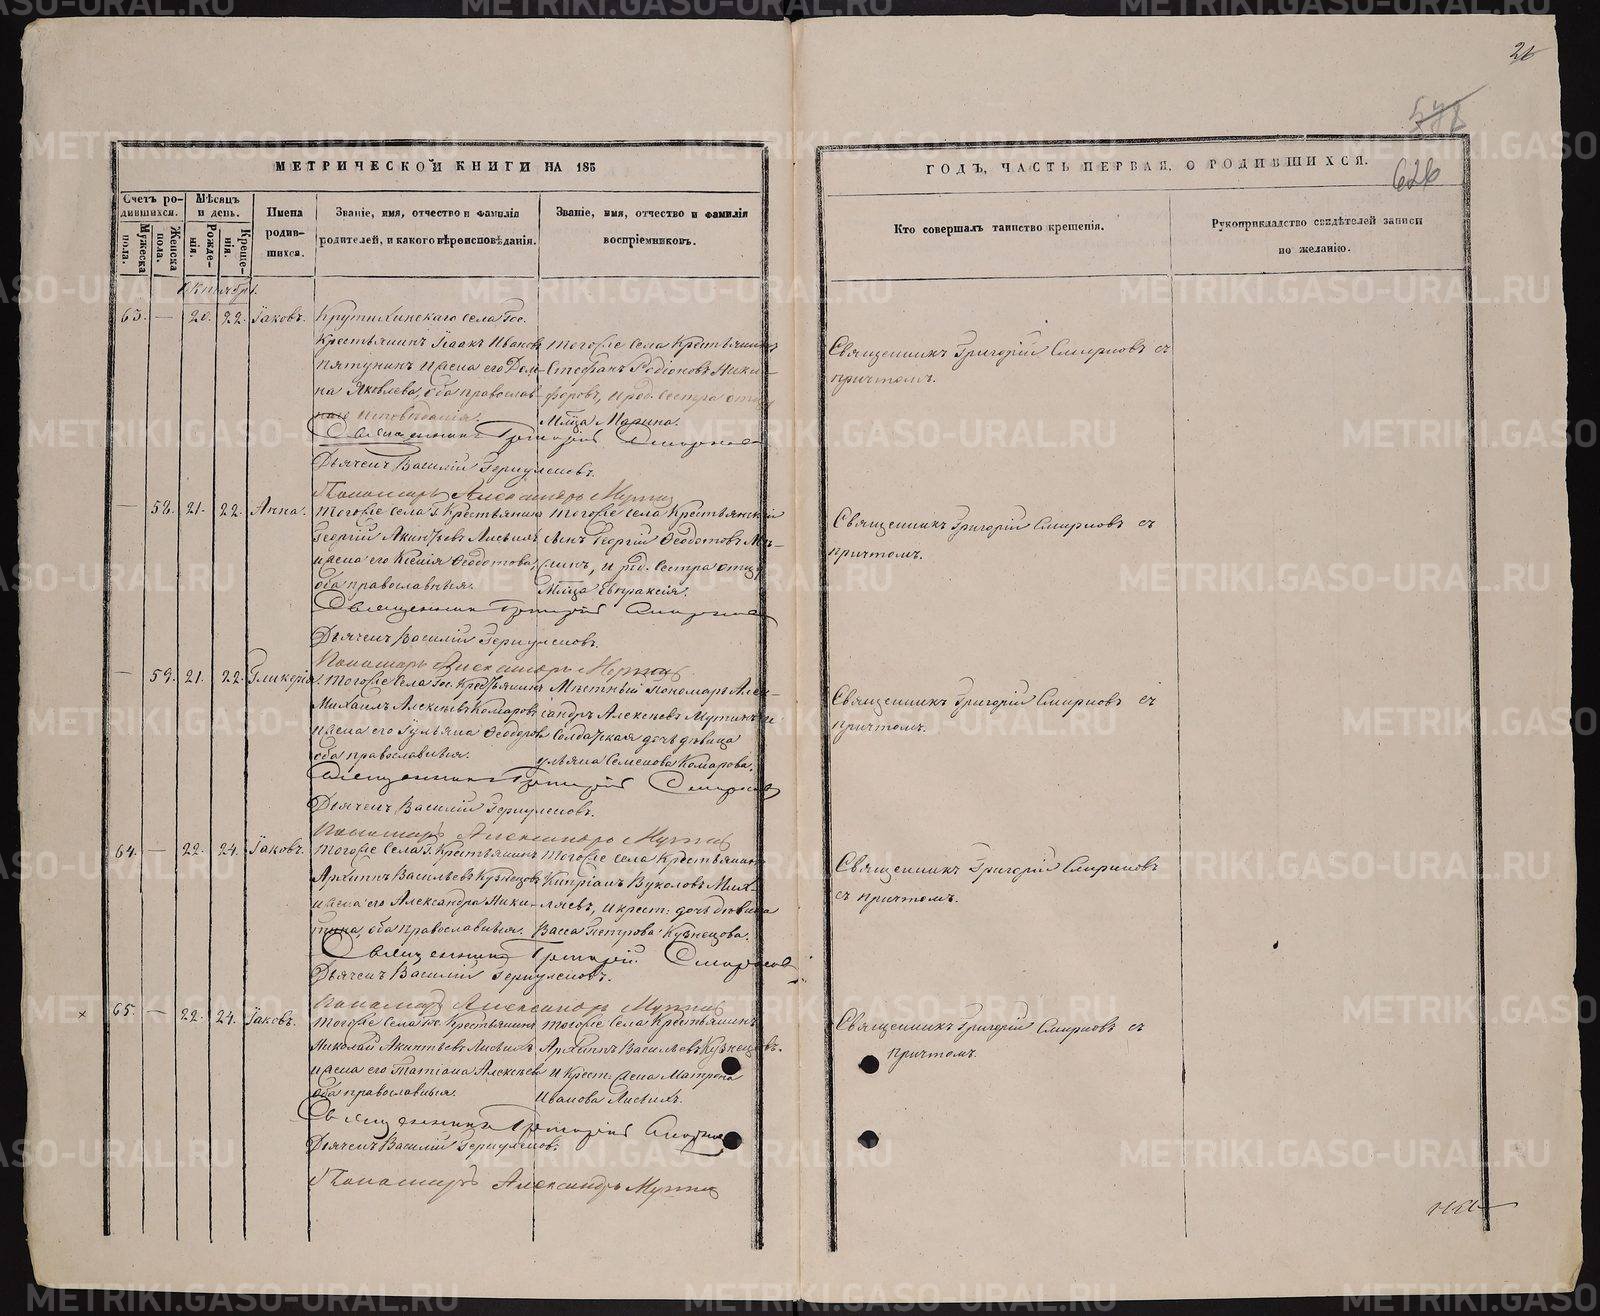 26
626
МЕТРИЧЕСКОЙ КНИГИ НА 185
ГОДЪ, ЧАСТЬ ПЕРВАЯ, О РОДИВШИХСЯ.
Счетъ родившихся.
Мужеска пола.
Женска пола.
Мѣсяцъ и день.
Рожденія.
Крещенія.
Имена родившихся.
Званіе, имя, отчество и фамилія
родителей, и какого вѣроисповѣданія.
Званіе, имя, отчество и фамилія
воспріемниковъ.
Кто совершалъ таинство крещенія.
Рукоприкладство свидѣтелей записи
по желанію.
Октябрь.
63. — 20. 22. Іаковъ.
Крутихинскаго села Гос.
Крестьянинъ Исаакъ Ивановъ
Пятунинъ и жена его Дом-
на Яковлева, оба православ-
наго исповѣданія.
тогоже села Крестьянинъ
Стефанъ Родіоновъ Ники-
форовъ, и род. сестра отцу
Марина.
Священникъ Григорій Смирновъ съ
причтомъ.
Священникъ Григорій Смирновъ
Дьячекъ Василій
Пономарь Александръ Мутинъ
— 58. 21. 22. Анна.
тогоже села Г. Крестьянинъ
Георгій Акинѳьевъ Лисьихъ
и жена его Ксенія Ѳеодотова,
оба православныя.
тогоже села Крестьянскій
сынъ Георгій Ѳеодотовъ
и род. сестра отцу
Евпраксія.
Священникъ Григорій Смирновъ съ
причтомъ.
Священникъ Григорій Смирновъ
Дьячекъ Василій
Пономарь Александръ Мутинъ
— 59. 21. 22. Гликерія.
тогоже села Гос. Крестьянинъ
Михаилъ Алексѣевъ Комаровъ
и жена его Гульяна Ѳеодоров
оба православныя.
Мѣстный Пономарь Алек-
сандръ Алексѣевъ Мутинъ и
Солдатская дочь дѣвица
Ульяна Семенова Комарова.
Священникъ Григорій Смирновъ съ
причтомъ.
Священникъ Григорій Смирновъ
Дьячекъ Василій
Пономарь Александръ Мутинъ
64. — 22. 24. Іаковъ.
тогоже села Г. Крестьянинъ
Архиппъ Васильевъ Кузнецовъ
и жена его Александра Ники-
тина, оба православныя.
тогоже села Крестьянинъ
Кипріанъ Вуколовъ Мих-
ляевъ, и крест: дочь дѣвица
Васса Петрова Кузнецова.
Священникъ Григорій Смирновъ
съ причтомъ.
Священникъ Григорій Смирновъ
Дьячекъ Василій
Пономарь Александръ Мутинъ
65. — 22. 24. Іаковъ.
тогоже села Гос. Крестьянинъ
Николай Акинтьевъ Лисьихъ
и жена его Татіана Алексѣева
оба православныя.
тогоже села Крестьянинъ
Архиппъ Васильевъ Кузнецовъ.
и Крест: жена Матрона
Иванова Лисьихъ.
Священникъ Григорій Смирновъ съ
причтомъ.
Священникъ Григорій Смирновъ
Дьячекъ Василій
Пономарь Александръ Мутинъ
METRIKI.GASO-URAL.RU